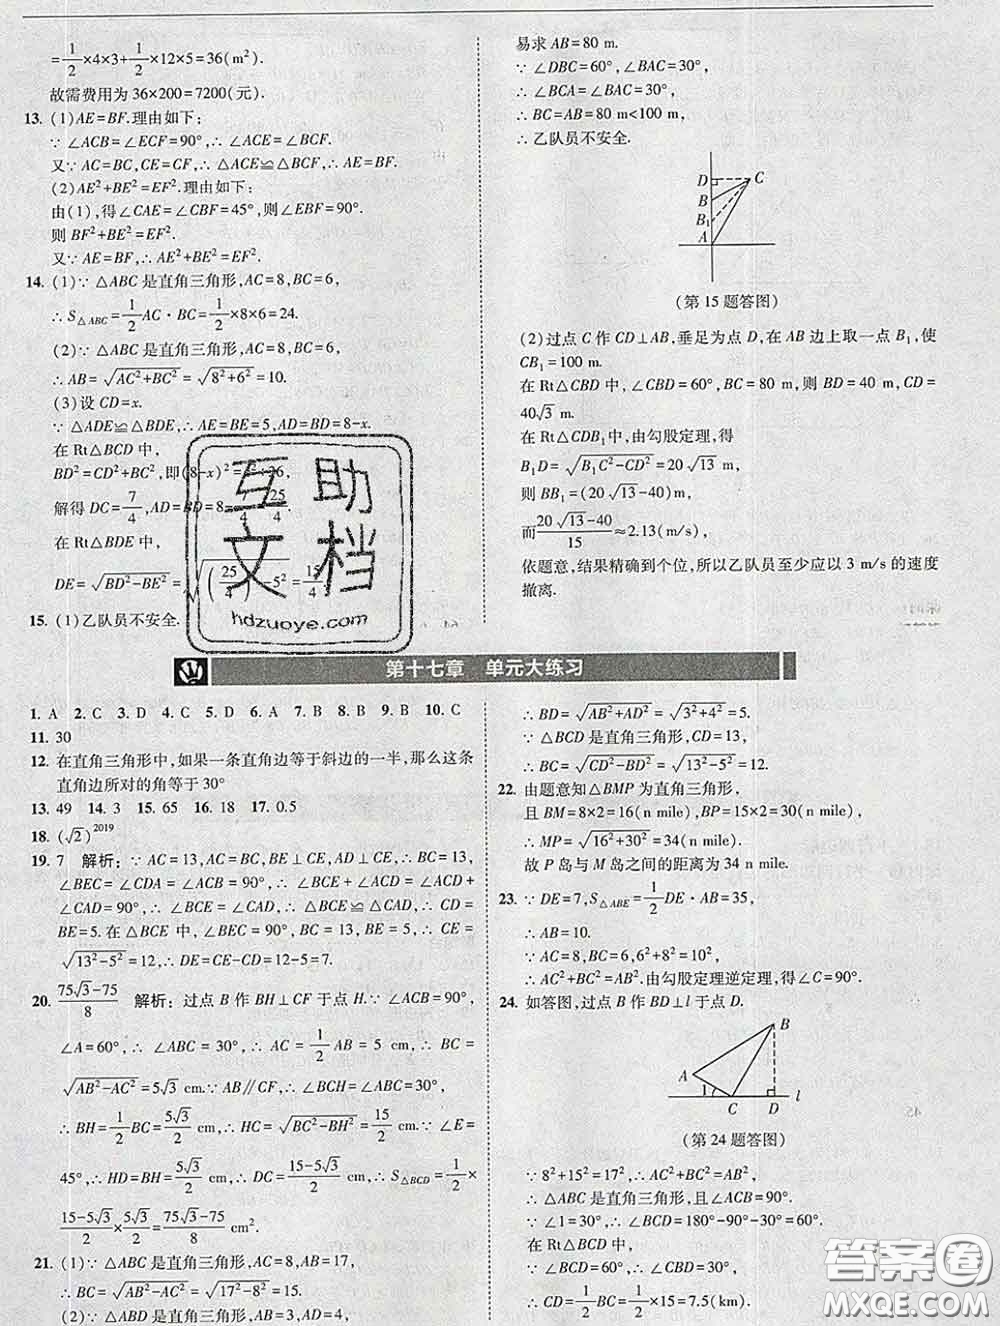 =1/2×4×3+1/2×12×5=36(m²).
故需费用为 36×200=7200(元).
13. (1)AE=BF.理由如下:
∵ ∠ACB=∠ECF=90°,∴ ∠ACE=∠BCF.
又∵ AC=BC,CE=CF,∴ △ACE≌△BCF,∴ AE=BF.
(2)AE²+BE²=EF².理由如下:
由(1),得∠CAE=∠CBF=45°,则∠EBF=90°.
则 BF²+BE²=EF².
又∵ AE=BF,∴ AE²+BE²=EF².
14. (1)∵ △ABC 是直角三角形,AC=8,BC=6,
∴ S△ABC=1/2AC·BC=1/2×8×6=24.
(2)∵ △ABC 是直角三角形,AC=8,BC=6,
∴ AB=√(AC²+BC²)=√(8²+6²)=10.
(3)设 CD=x.
∵ △ADE≌△BDE,∴ AE=BE=5,AD=BD=8-x.
在 Rt△BCD 中,
BD²=CD²+BC²,即(8-x)²=
解得 DC=7/4,AD=BD=8-7/4=25/4.
在 Rt△BDE 中,
DE=√(BD²-BE²)=√((25/4)²-5²)=15/4.
15. (1)乙队员不安全.
易求 AB=80 m.
∵ ∠DBC=60°,∠BAC=30°,
∴ ∠BCA=∠BAC=30°,
∴ BC=AB=80 m<100 m,
∴ 乙队员不安全.
D C
B
B₁
A
(第15题答图)
(2)过点 C 作 CD⊥AB,垂足为点 D,在 AB 边上取一点 B₁,使
CB₁=100 m.
在 Rt△CBD 中,∠CBD=60°,BC=80 m,则 BD=40 m,CD=
40√3 m.
在 Rt△CDB₁中,由勾股定理,得
B₁D=√(B₁C²-CD²)=20√13 m,
则 BB₁=(20√13-40)m,
而(20√13-40)/15≈2.13(m/s),
依题意,结果精确到个位,所以乙队员至少应以 3 m/s的速度
撤离.
互助
文档
hdzuoye.com
第十七章 单元大练习
1. A 2. C 3. D 4. C 5. D 6. A 7. B 8. B 9. B 10. C
11. 30
12. 在直角三角形中,如果一条直角边等于斜边的一半,那么这条
直角边所对的角等于30°
13. 49 14. 3 15. 65 16. 18 17. 0.5
18. (√2)²⁰¹⁹
19. 7 解析:∵ AC=13,AC=BC,BE⊥CE,AD⊥CE,∴ BC=13,
∠BEC=∠CDA=∠ACB=90°,∴ ∠BCE+∠ACE=∠CAD+
∠ACE=90°,∴ ∠BCE=∠CAD,∴ △BCE≌△CAD,∴ CD=
BE=5.在△BCE 中,∠BEC=90°,BC=13,BE=5,∴ CE=
√(13²-5²)=12,∴ DE=CE-CD=12-5=7.
20. (75√3-75)/8 解析:过点 B 作 BH⊥CF 于点 H.∵ ∠ACB=90°,
∠A=60°,∴ ∠ABC=30°,∴ AC=1/2 AB=5 cm,∴ BC=
√(AB²-AC²)=5√3 cm.∵ AB∥CF,∴ ∠BCH=∠ABC=30°,
∴ BH=1/2BC=5√3/2 cm,∴ HC=√(BC²-BH²)=15/2 cm.∵ ∠E=
45°,∴ HD=BH=5√3/2 cm,∴ DC=(15-5√3)/2 cm,∴ S△BCD=1/2×
(15-5√3)/2×5√3/2=(75√3-75)/8 cm².
21. (1)∵ △ABC 是直角三角形,AC=8,AB=17,
∴ BC=√(AB²-AC²)=√(17²-8²)=15.
(2)∵ △ABD 是直角三角形,AB=3,AD=4,
∴ BD=√(AB²+AD²)=√(3²+4²)=5.
∵ △BCD 是直角三角形,CD=13,
∴ BC=√(CD²-BD²)=√(13²-5²)=12.
22. 由题意知△BMP 为直角三角形,
且 BM=8×2=16(n mile),BP=15×2=30(n mile),
∴ MP=√(16²+30²)=34(n mile).
故 P 岛与 M 岛之间的距离为 34 n mile.
23. ∵ DE=7,S△ABE=1/2DE·AB=35,
∴ AB=10.
∵ AC=8,BC=6,6²+8²=10²,
∴ AC²+BC²=AB².由勾股定理逆定理,得∠C=90°.
24. 如答图,过点 B 作 BD⊥l 于点 D.
B
A
1
C D l
(第24题答图)
∵ 8²+15²=17²,∴ AC²+BC²=AB²,
∴ △ABC 是直角三角形,且∠ACB=90°.
∵ ∠1=30°,∴ ∠BCD=180°-90°-30°=60°.
在 Rt△BCD 中,
∵ ∠BCD=60°,∴ ∠CBD=30°,
∴ CD=1/2BC=1/2×15=7.5(km).
答案圈
MXQE.COM